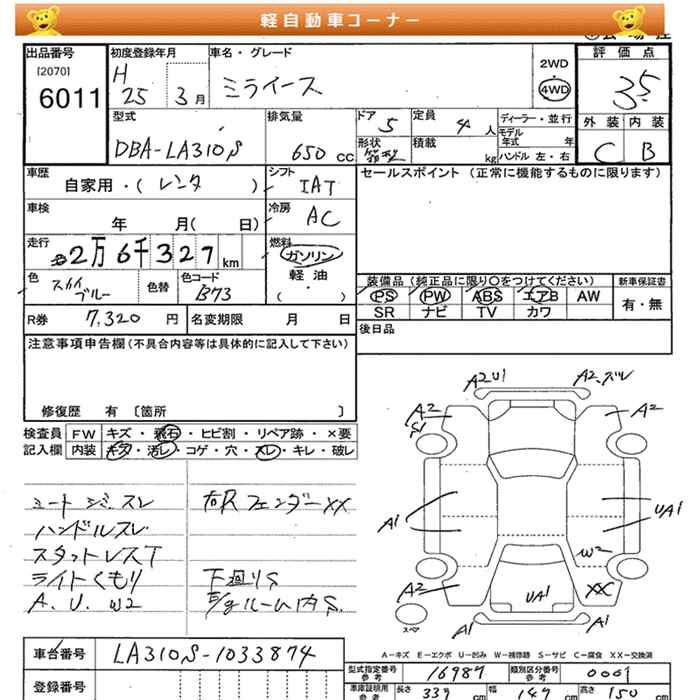 軽自動車コーナー
出品番号 [2070] 6011
初度登録年月 H 25 3月
車名・グレード ミライース
2WD
4WD
評価点 3.5
型式 DBA-LA310S
排気量 650 cc
ドア 5
形状
定員 4人
積載 kg
ディーラー・並行
モデル年式 年
ハンドル 左・右
外装 内装
C B
車歴 自家用・(レンタ)
シフト IAT
セールスポイント (正常に機能するものに限ります)
車検 年 月( 日)
冷房 AC
走行 2万6千327km
燃料 ガソリン
軽油
( ・ )
色 スカイブルー
色替
色コード B73
装備品 (純正品に限り○をつけてください) 新車保証書
PS PW ABS エアB AW 有・無
SR ナビ TV カワ
R券 7,320円
名変期限 月 日
後日品
注意事項申告欄(不具合内容等は具体的に記入して下さい)
修復歴 有 〔箇所 〕
検査員 FW キズ・飛石・ヒビ割・リペア跡・×要
記入欄 内装 キズ・汚レ・コゲ・穴・スレ・キレ・破レ
ハンドルスレ
ライトくもり
A. U. W2
右Rフェンダー XX
下廻りS
E/gルーム内S.
A2 U1
A2.
A2
S1
A2
A1
UA1
W2
A2
UA1
XX
A1
A1
スペア
A-キズ E-エクボ U-凹み W-補修跡 S-サビ C-腐食 XX-交換済
車台番号 LA310S-1033874
型式指定番号 参考 16987
類別区分番号 参考 0001
登録番号
車庫証明用 参考 長さ 339 cm 幅 147 cm 高さ 150 cm